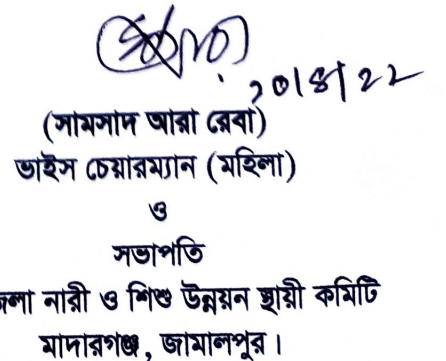 ২০/৪/২২
(সামসাদ আরা রেবা)
ভাইস চেয়ারম্যান (মহিলা)
ও
সভাপতি
জলা নারী ও শিশু উন্নয়ন স্থায়ী কমিটি
মাদারগঞ্জ, জামালপুর।